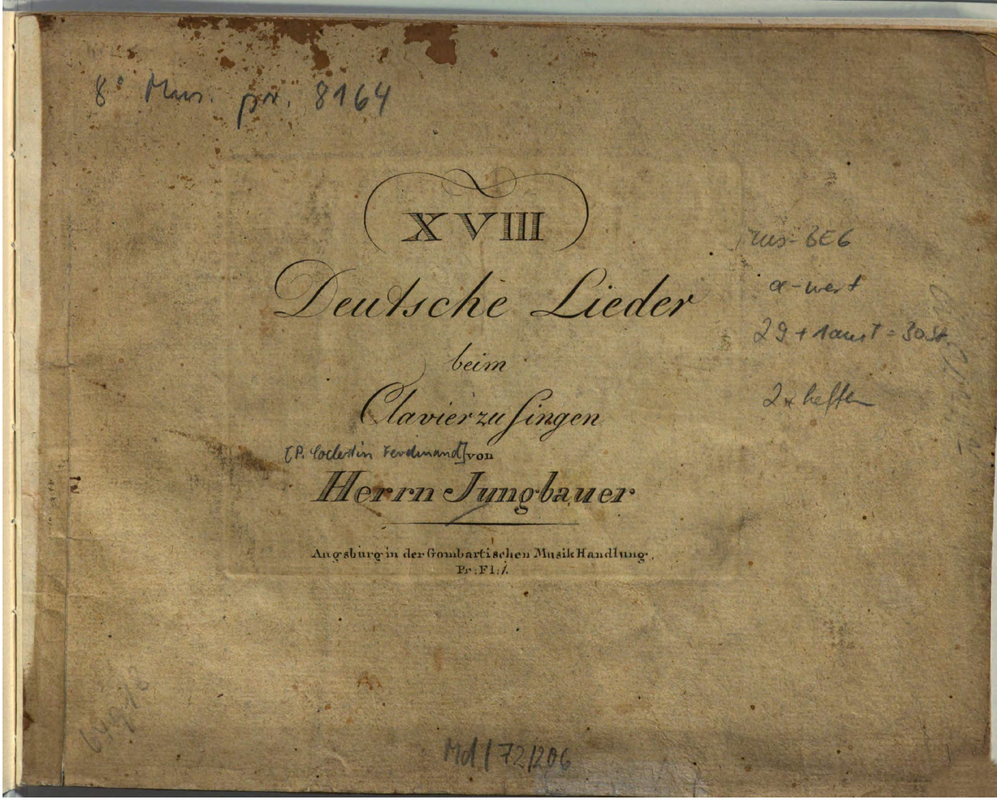 8° Mus. pr. 8164
XVIII
Deutsche Lieder
beim
Clavier zu singen
[P. Coelestin Ferdinand] von
Herrn Jungbauer
Augsburg in der Gombartischen Musik Handlung.
Pr: Fl: 1.
α-wert
2 x heften
Md/72/206